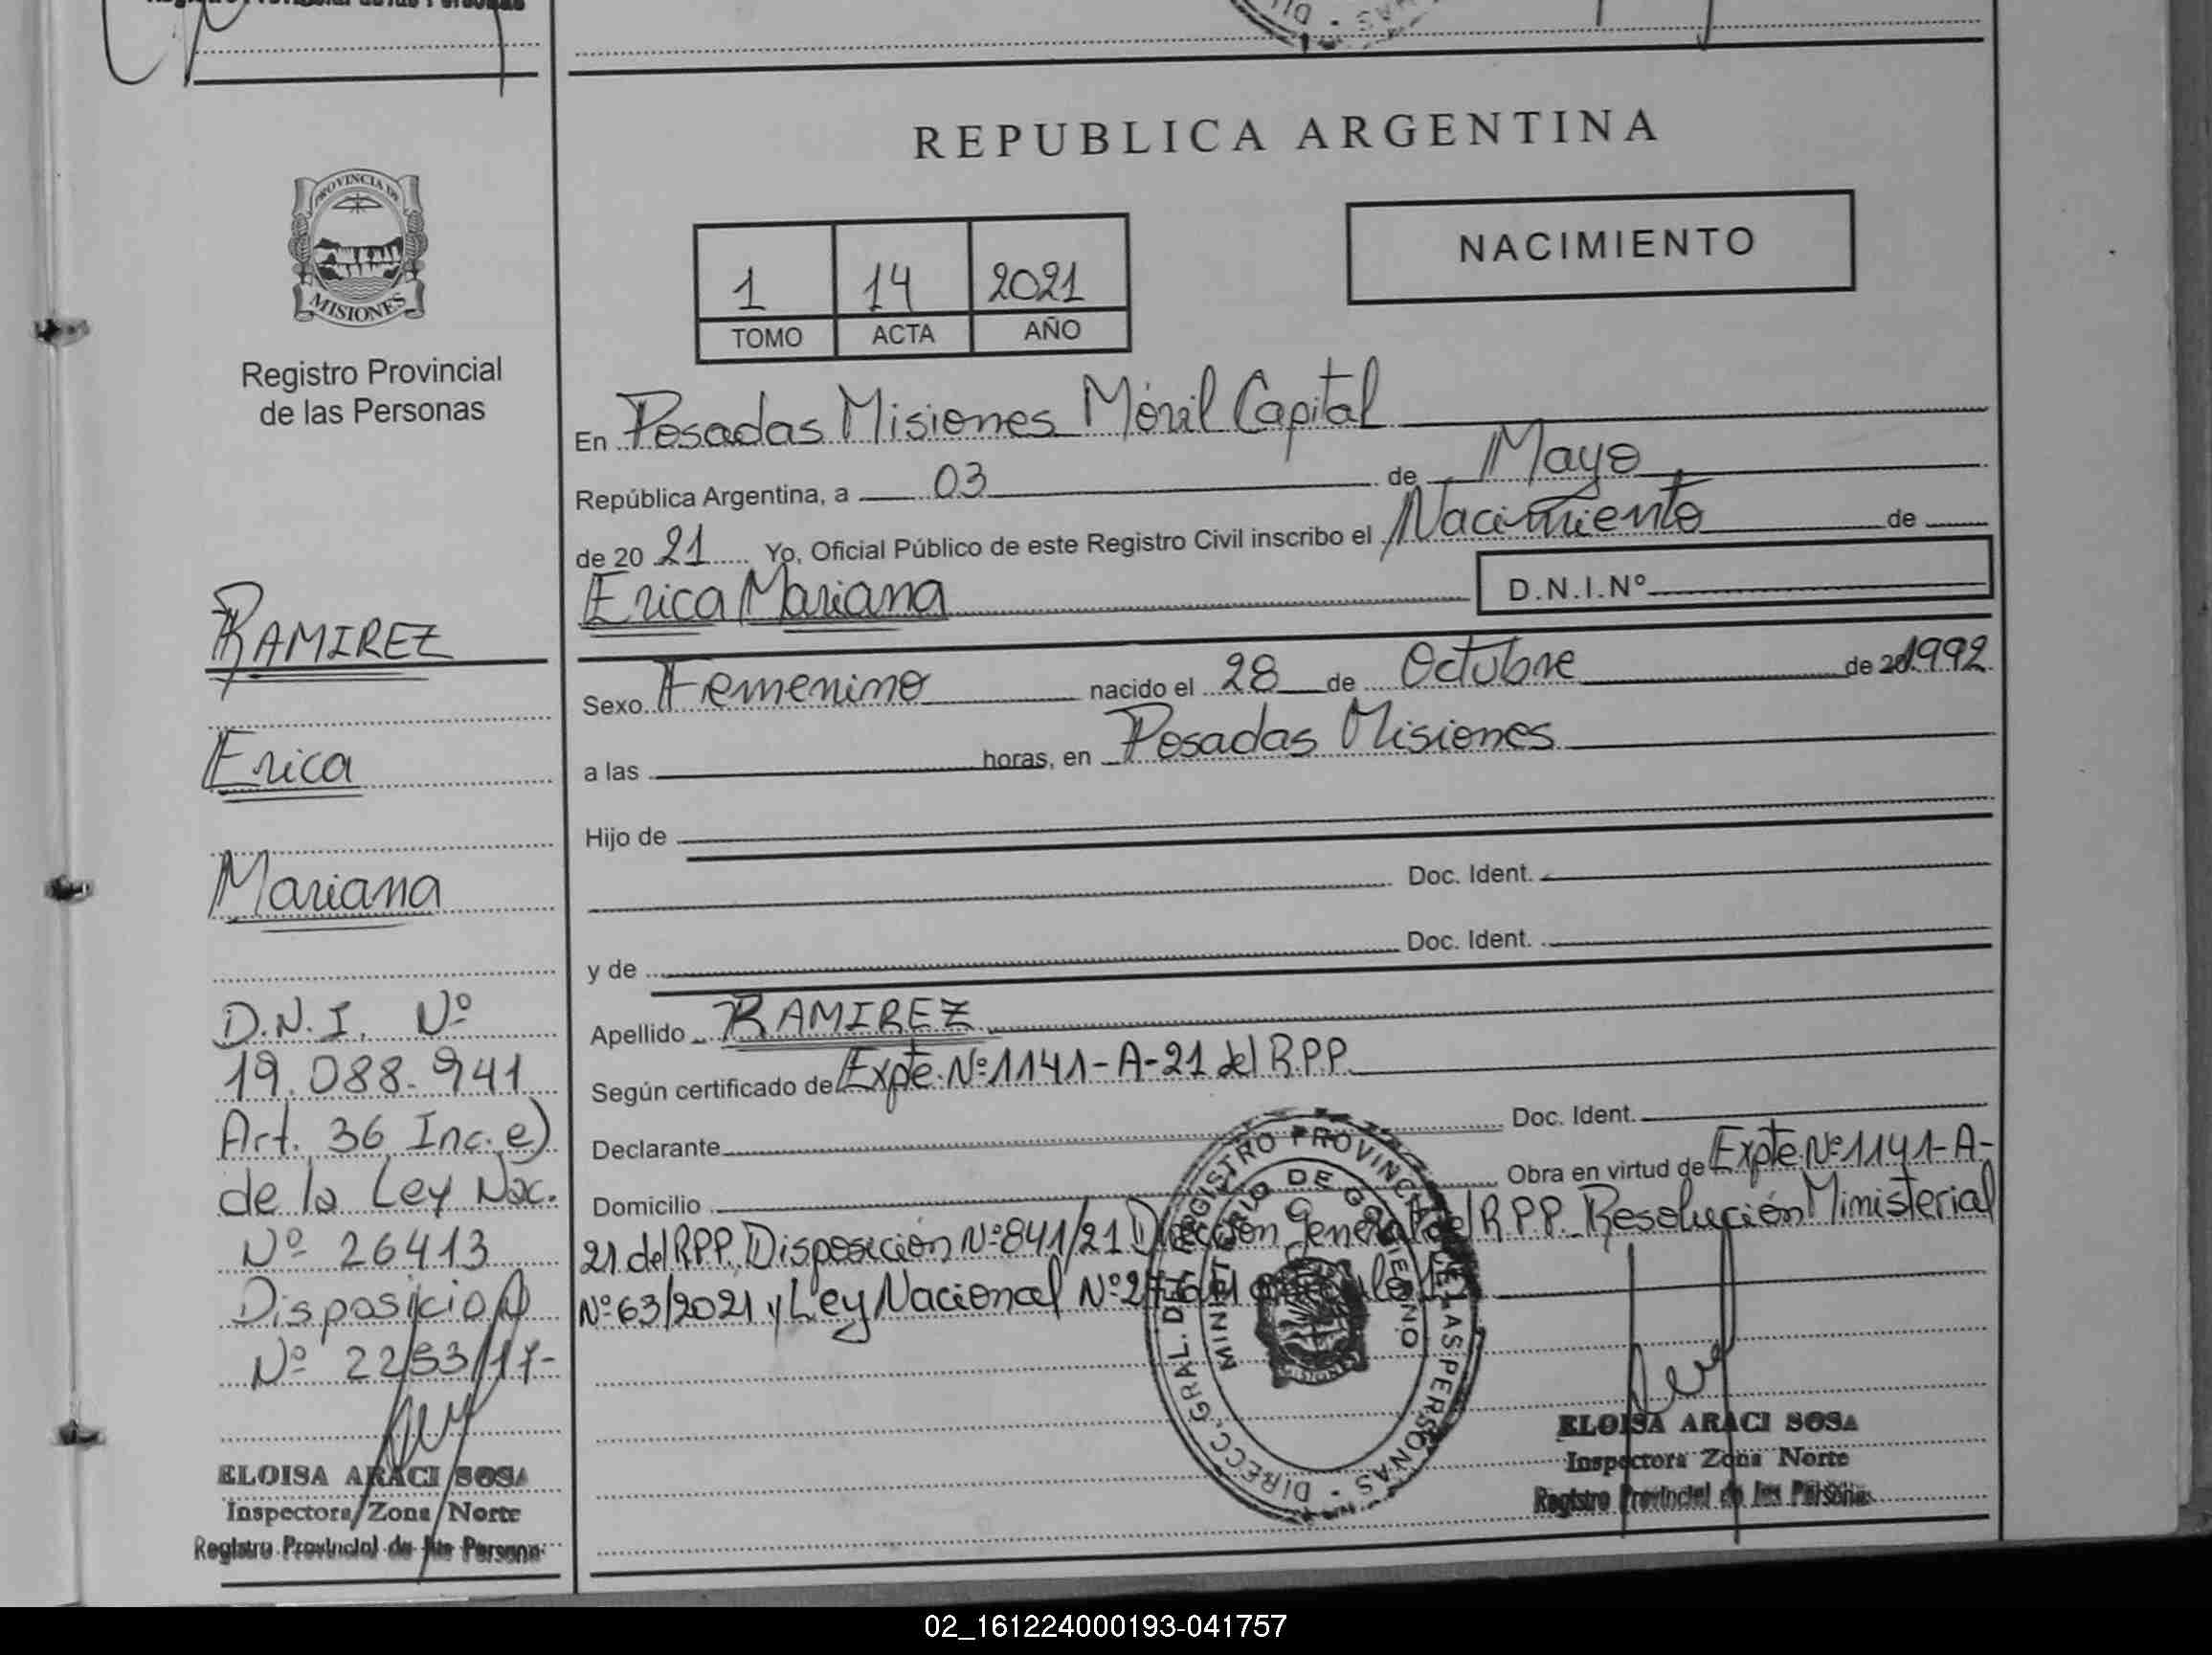 REPUBLICA ARGENTINA
PROVINCIA DE
MISIONES
Registro Provincial
de las Personas
NACIMIENTO
1 14 2021
TOMO ACTA AÑO
En Posadas Misiones Móvil Capital
República Argentina, a 03 de Mayo
de 20 21 Yo, Oficial Público de este Registro Civil inscribo el Nacimiento de
Erica Mariana D.N.I.Nº
Sexo Femenino nacido el 28 de Octubre de 1992
a las horas, en Posadas Misiones
Hijo de
Doc. Ident.
y de Doc. Ident.
Apellido RAMIREZ
Según certificado de Expte. Nº 1141-A-21 del R.P.P.
Declarante Doc. Ident.
Domicilio Obra en virtud de Expte. Nº 1141-A-
21 del RPP. Disposición Nº 841/21 Dirección General del R.P.P. Resolución Ministerial
Nº 63/2021 y Ley Nacional Nº
RAMIREZ
Erica
Mariana
D.N.I. Nº
19.088.941
Art. 36 Inc. e)
de la Ley Nac.
Nº 26413
Disposicion
Nº 2253/17-
ELOISA ARACI SOSA
Inspectora Zona Norte
Registro Provincial de las Personas
DIRECC. GRAL. DEL REGISTRO PROVINCIAL DE LAS PERSONAS
MINISTERIO DE GOBIERNO
ELOISA ARACI SOSA
Inspectora Zona Norte
Registro Provincial de las Personas
02_161224000193-041757